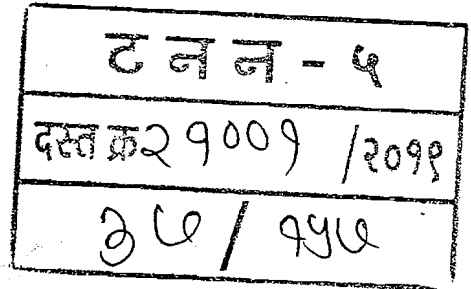 ट न न - ५
दस्त क्र २१००१ /२०१९
३७ / १५७